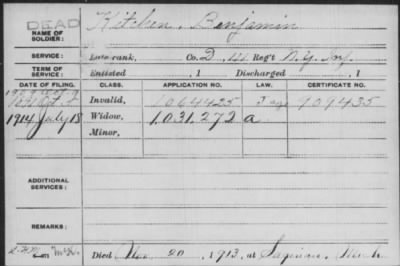 DEAD
NAME OF SOLDIER: Kitchen, Benjamin
SERVICE: Late rank, Co. D, 120 Reg't N.Y. Inf.
TERM OF SERVICE: Enlisted , 1 Discharged , 1
DATE OF FILING. CLASS. APPLICATION NO. LAW. CERTIFICATE NO.
Invalid, 1064425 709435
1914 July 18 Widow, 1.031.272 a
Minor,
ADDITIONAL SERVICES:
REMARKS:
Died Nov. 20, 1913, at Saginaw, Mich